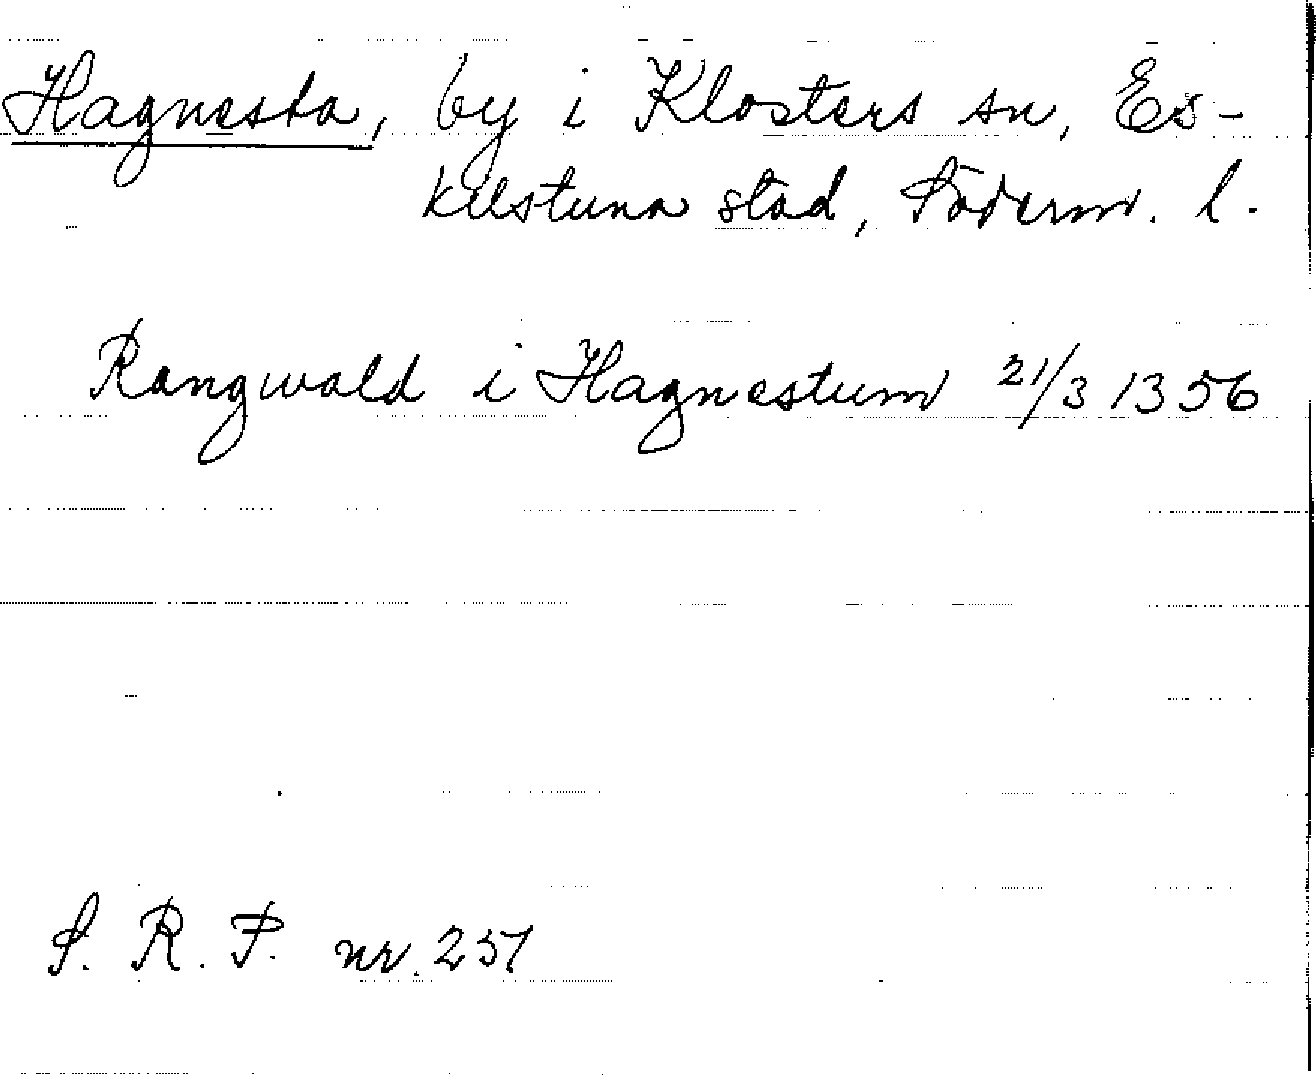 Hagnesta, by i Klosters sn, Es-
kilstuna stad, Söderm. l.
Rangwald i Hagnestum 21/3 1356
S. R. P. nr. 257